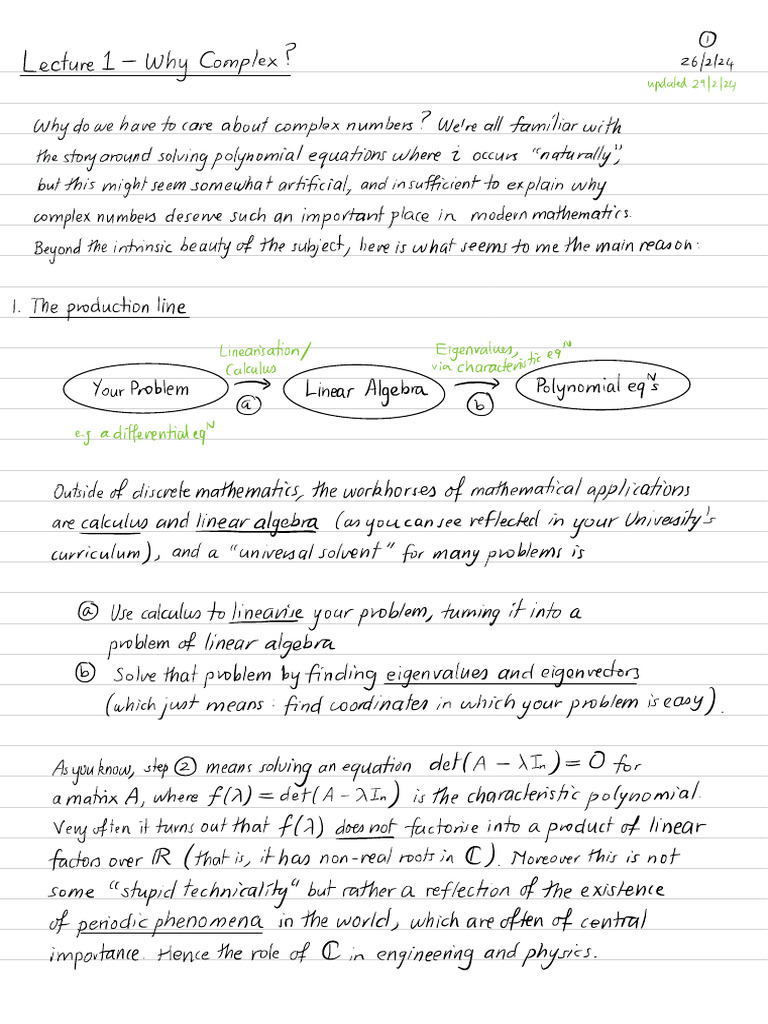 ①
Lecture 1 – Why Complex?
26/2/24
updated 29/2/24
Why do we have to care about complex numbers? We're all familiar with
the story around solving polynomial equations where i occurs "naturally",
but this might seem somewhat artificial, and insufficient to explain why
complex numbers deserve such an important place in modern mathematics.
Beyond the intrinsic beauty of the subject, here is what seems to me the main reason:
1. The production line
Linearisation/
Calculus
Eigenvalues,
via characteristic eqᴺ
Your Problem
Linear Algebra
Polynomial eqᴺs
ⓐ
ⓑ
e.g. a differential eqᴺ
Outside of discrete mathematics, the workhorses of mathematical applications
are calculus and linear algebra (as you can see reflected in your University's
curriculum), and a "universal solvent" for many problems is
ⓐ Use calculus to linearise your problem, turning it into a
problem of linear algebra
ⓑ Solve that problem by finding eigenvalues and eigenvectors
(which just means: find coordinates in which your problem is easy).
As you know, step ② means solving an equation det(A – λIₙ) = 0 for
a matrix A, where f(λ) = det(A – λIₙ) is the characteristic polynomial.
Very often it turns out that f(λ) does not factorise into a product of linear
factors over ℝ (that is, it has non-real roots in ℂ). Moreover this is not
some "stupid technicality" but rather a reflection of the existence
of periodic phenomena in the world, which are often of central
importance. Hence the role of ℂ in engineering and physics.